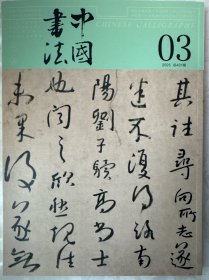 中國書法
CHINESE CALLIGRAPHY
03
其往尋向所志遂
迷不復得路南
陽劉子驥高尚士
也聞之欣然規往
未果後遂無